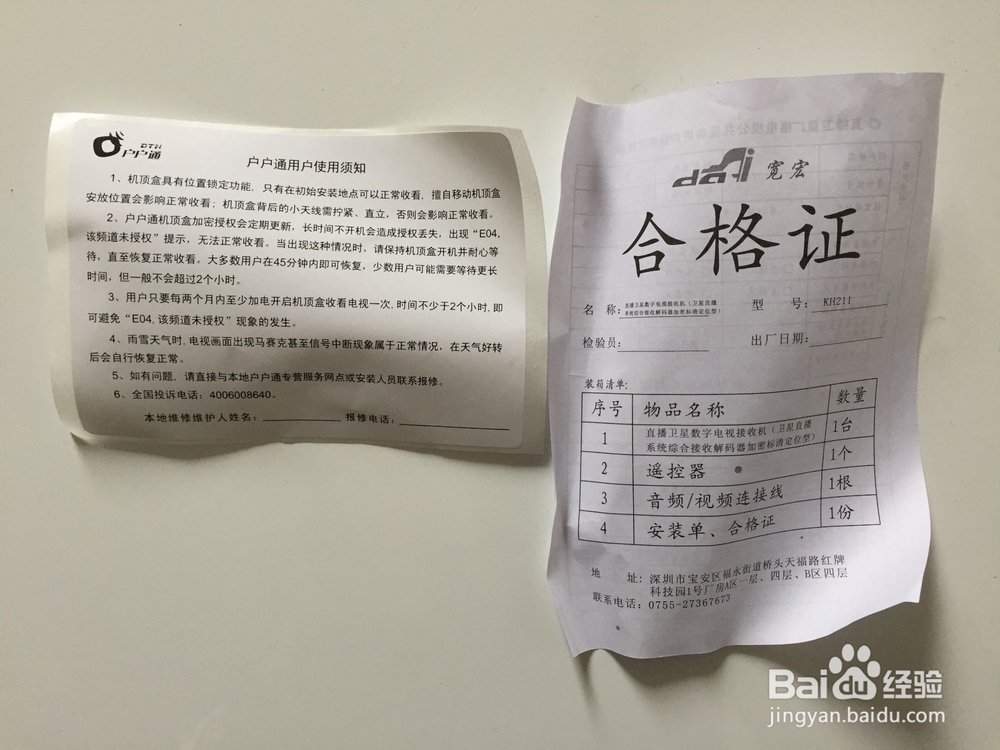 DTH
户户通
户户通用户使用须知
1、机顶盒具有位置锁定功能，只有在初始安装地点可以正常收看，擅自移动机顶盒
安放位置会影响正常收看；机顶盒背后的小天线需拧紧、直立，否则会影响正常收看。
2、户户通机顶盒加密授权会定期更新，长时间不开机会造成授权丢失，出现“E04,
该频道未授权”提示，无法正常收看。当出现这种情况时，请保持机顶盒开机并耐心等
待，直至恢复正常收看。大多数用户在45分钟内即可恢复，少数用户可能需要等待更长
时间，但一般不会超过2个小时。
3、用户只要每两个月内至少加电开启机顶盒收看电视一次,时间不少于2个小时,即
可避免“E04,该频道未授权”现象的发生。
4、雨雪天气时,电视画面出现马赛克甚至信号中断现象属于正常情况，在天气好转
后会自行恢复正常。
5、如有问题，请直接与本地户户通专营服务网点或安装人员联系报修。
6、全国投诉电话：4006008640。
本地维修维护人姓名： 报修电话：
宽宏
合格证
名 称：直播卫星数字电视接收机（卫星直播
系统综合接收解码器加密标清定位型） 型 号：KH211
检验员： 出厂日期：
装箱清单：
序号 物品名称 数量
1 直播卫星数字电视接收机（卫星直播
系统综合接收解码器加密标清定位型） 1台
2 遥控器 1个
3 音频/视频连接线 1根
4 安装单、合格证 1份
地 址：深圳市宝安区福永街道桥头天福路红牌
科技园1号厂房A区一层、四层、B区四层
联系电话：0755-27367673
Baidu经验
jingyan.baidu.com